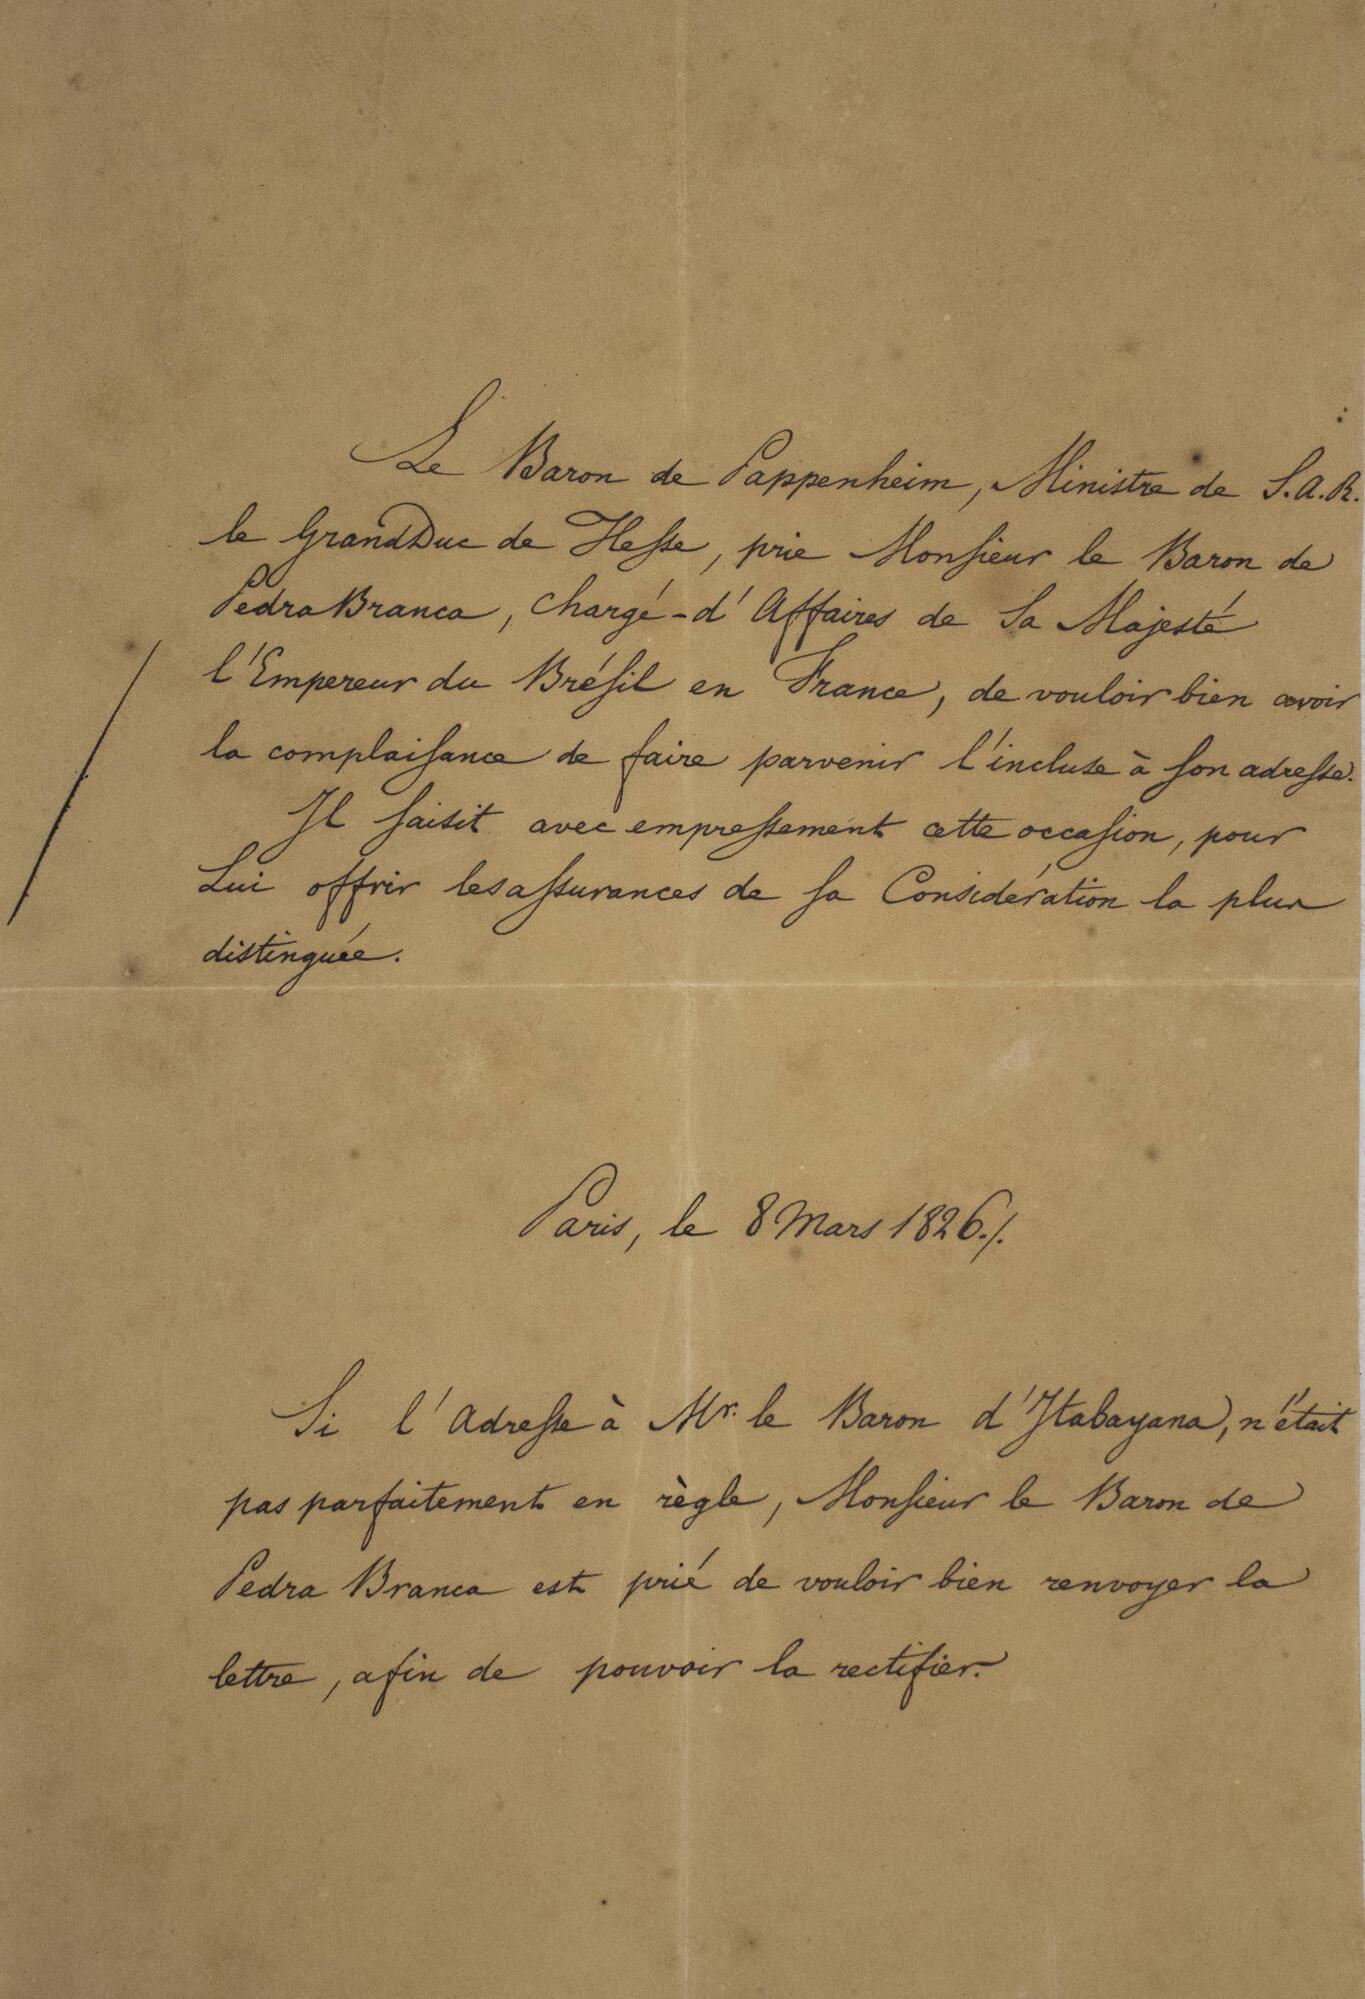 Le Baron de Pappenheim, Ministre de S.A.R.
le Grand Duc de Hesse, prie Monsieur le Baron de
Pedra Branca, chargé-d'Affaires de Sa Majesté
l'Empereur du Brésil en France, de vouloir bien avoir
la complaisance de faire parvenir l'incluse à son adresse.
Il saisit avec empressement cette occasion, pour
Lui offrir les assurances de sa Considération la plus
distinguée.
Paris, le 8 Mars 1826./.
Si l'Adresse à Mr. le Baron d'Itabayana, n'était
pas parfaitement en règle, Monsieur le Baron de
Pedra Branca est prié de vouloir bien renvoyer la
lettre, afin de pouvoir la rectifier.